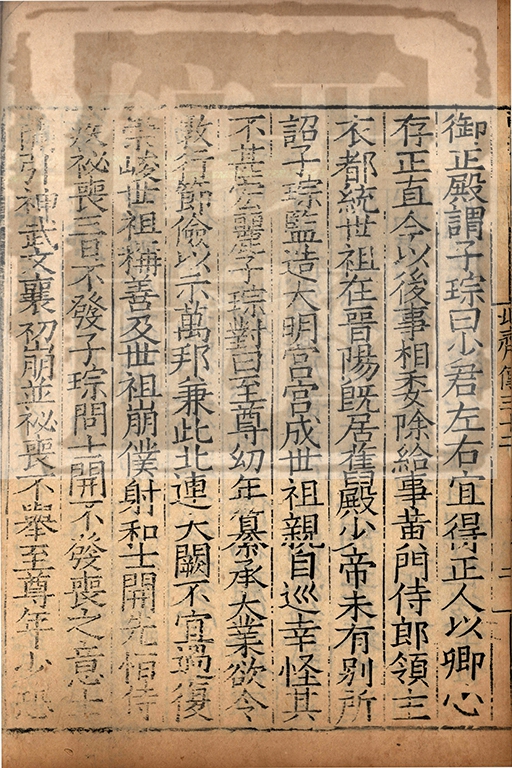 御正殿謂子琮曰少君左右宜得正人以卿心
存正直今以後事相委除給事黃門侍郎領主
衣都統世祖在晉陽旣居舊殿少帝未有别所
詔子琮監造大明宫宫成世祖親自巡幸怪其
不甚宏麗子琮對曰至尊幼年纂承大業欲令
敦行節儉以示萬邦兼此北連大闕不宜過復
崇峻世祖稱善及世祖崩僕射和士開先恒侍
疾祕喪三日不發子琮問士開不發喪之意士
開引神武文襄初崩並祕喪不舉至尊年少恐
北齊傳三十二